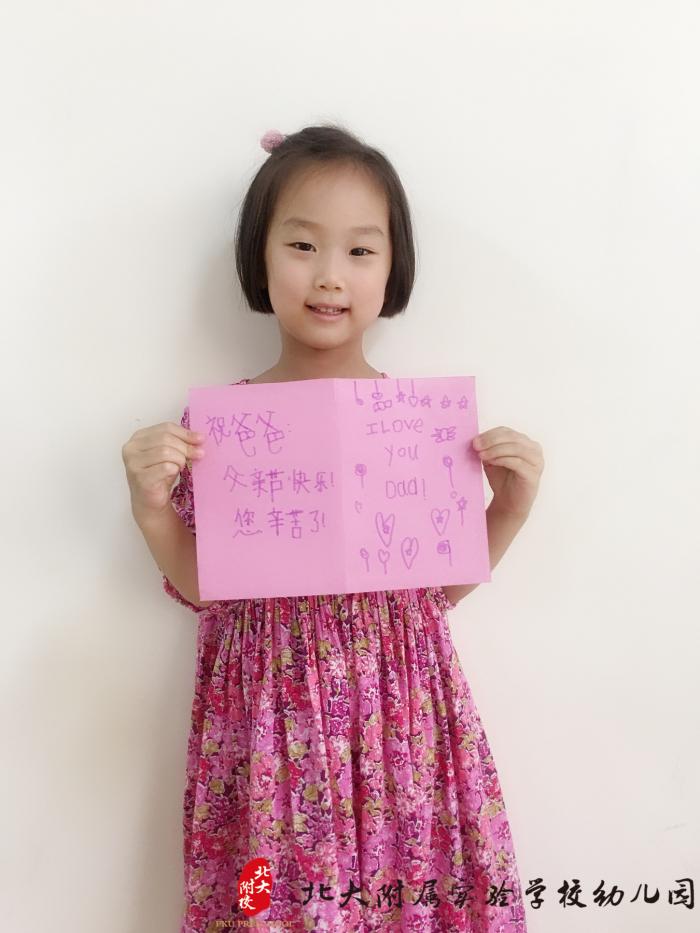 祝爸爸:
父亲节快乐!
您辛苦了!
I Love
You
Dad!
北大附校
PKU PRESCHOOL
北大附属实验学校幼儿园